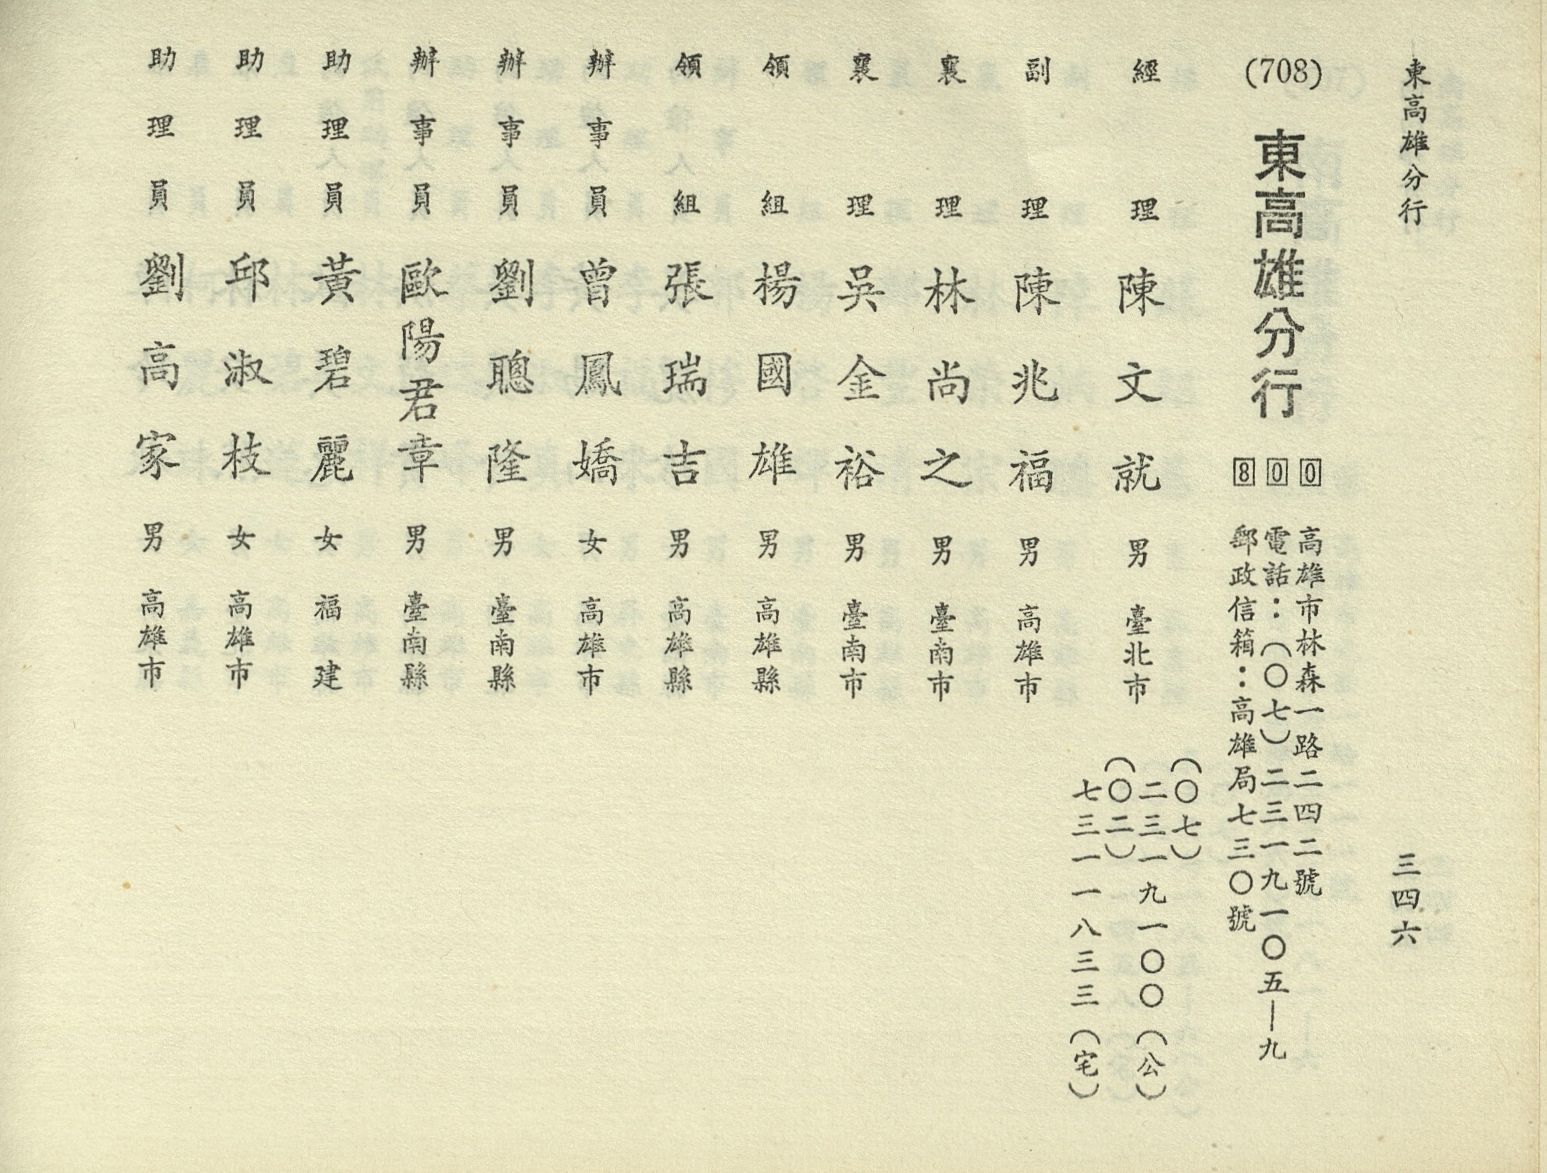 東高雄分行
三四六
(708) 東高雄分行
800
高雄市林森一路二四二號
電話：（〇七）二三一九一〇五—九
郵政信箱：高雄局七三〇號
經理 陳文就 男 臺北市
（〇七）
二三一九一〇〇（公）
（〇二）
七三一一八三三（宅）
副理 陳兆福 男 高雄市
襄理 林尚之 男 臺南市
襄理 吳金裕 男 臺南市
領組 楊國雄 男 高雄縣
領組 張瑞吉 男 高雄縣
辦事員 曾鳳嬌 女 高雄市
辦事員 劉聰隆 男 臺南縣
辦事員 歐陽君章 男 臺南縣
助理員 黃碧麗 女 福建
助理員 邱淑枝 女 高雄市
助理員 劉高家 男 高雄市